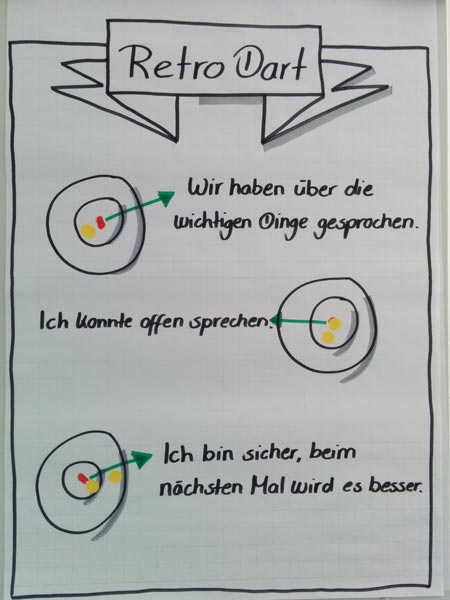 Retro Dart
Wir haben über die
wichtigen Dinge gesprochen.
Ich konnte offen sprechen.
Ich bin sicher, beim
nächsten Mal wird es besser.